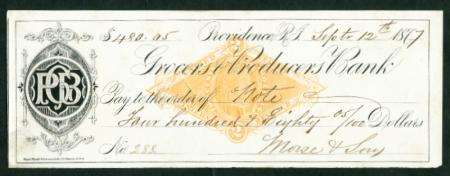 $480.05 Providence R.I. Sept. 12th 1877
Grocers & Producers Bank
Pay to the order of Note
Four hundred & Eighty 05/100 Dollars
No 288 Morse & Son